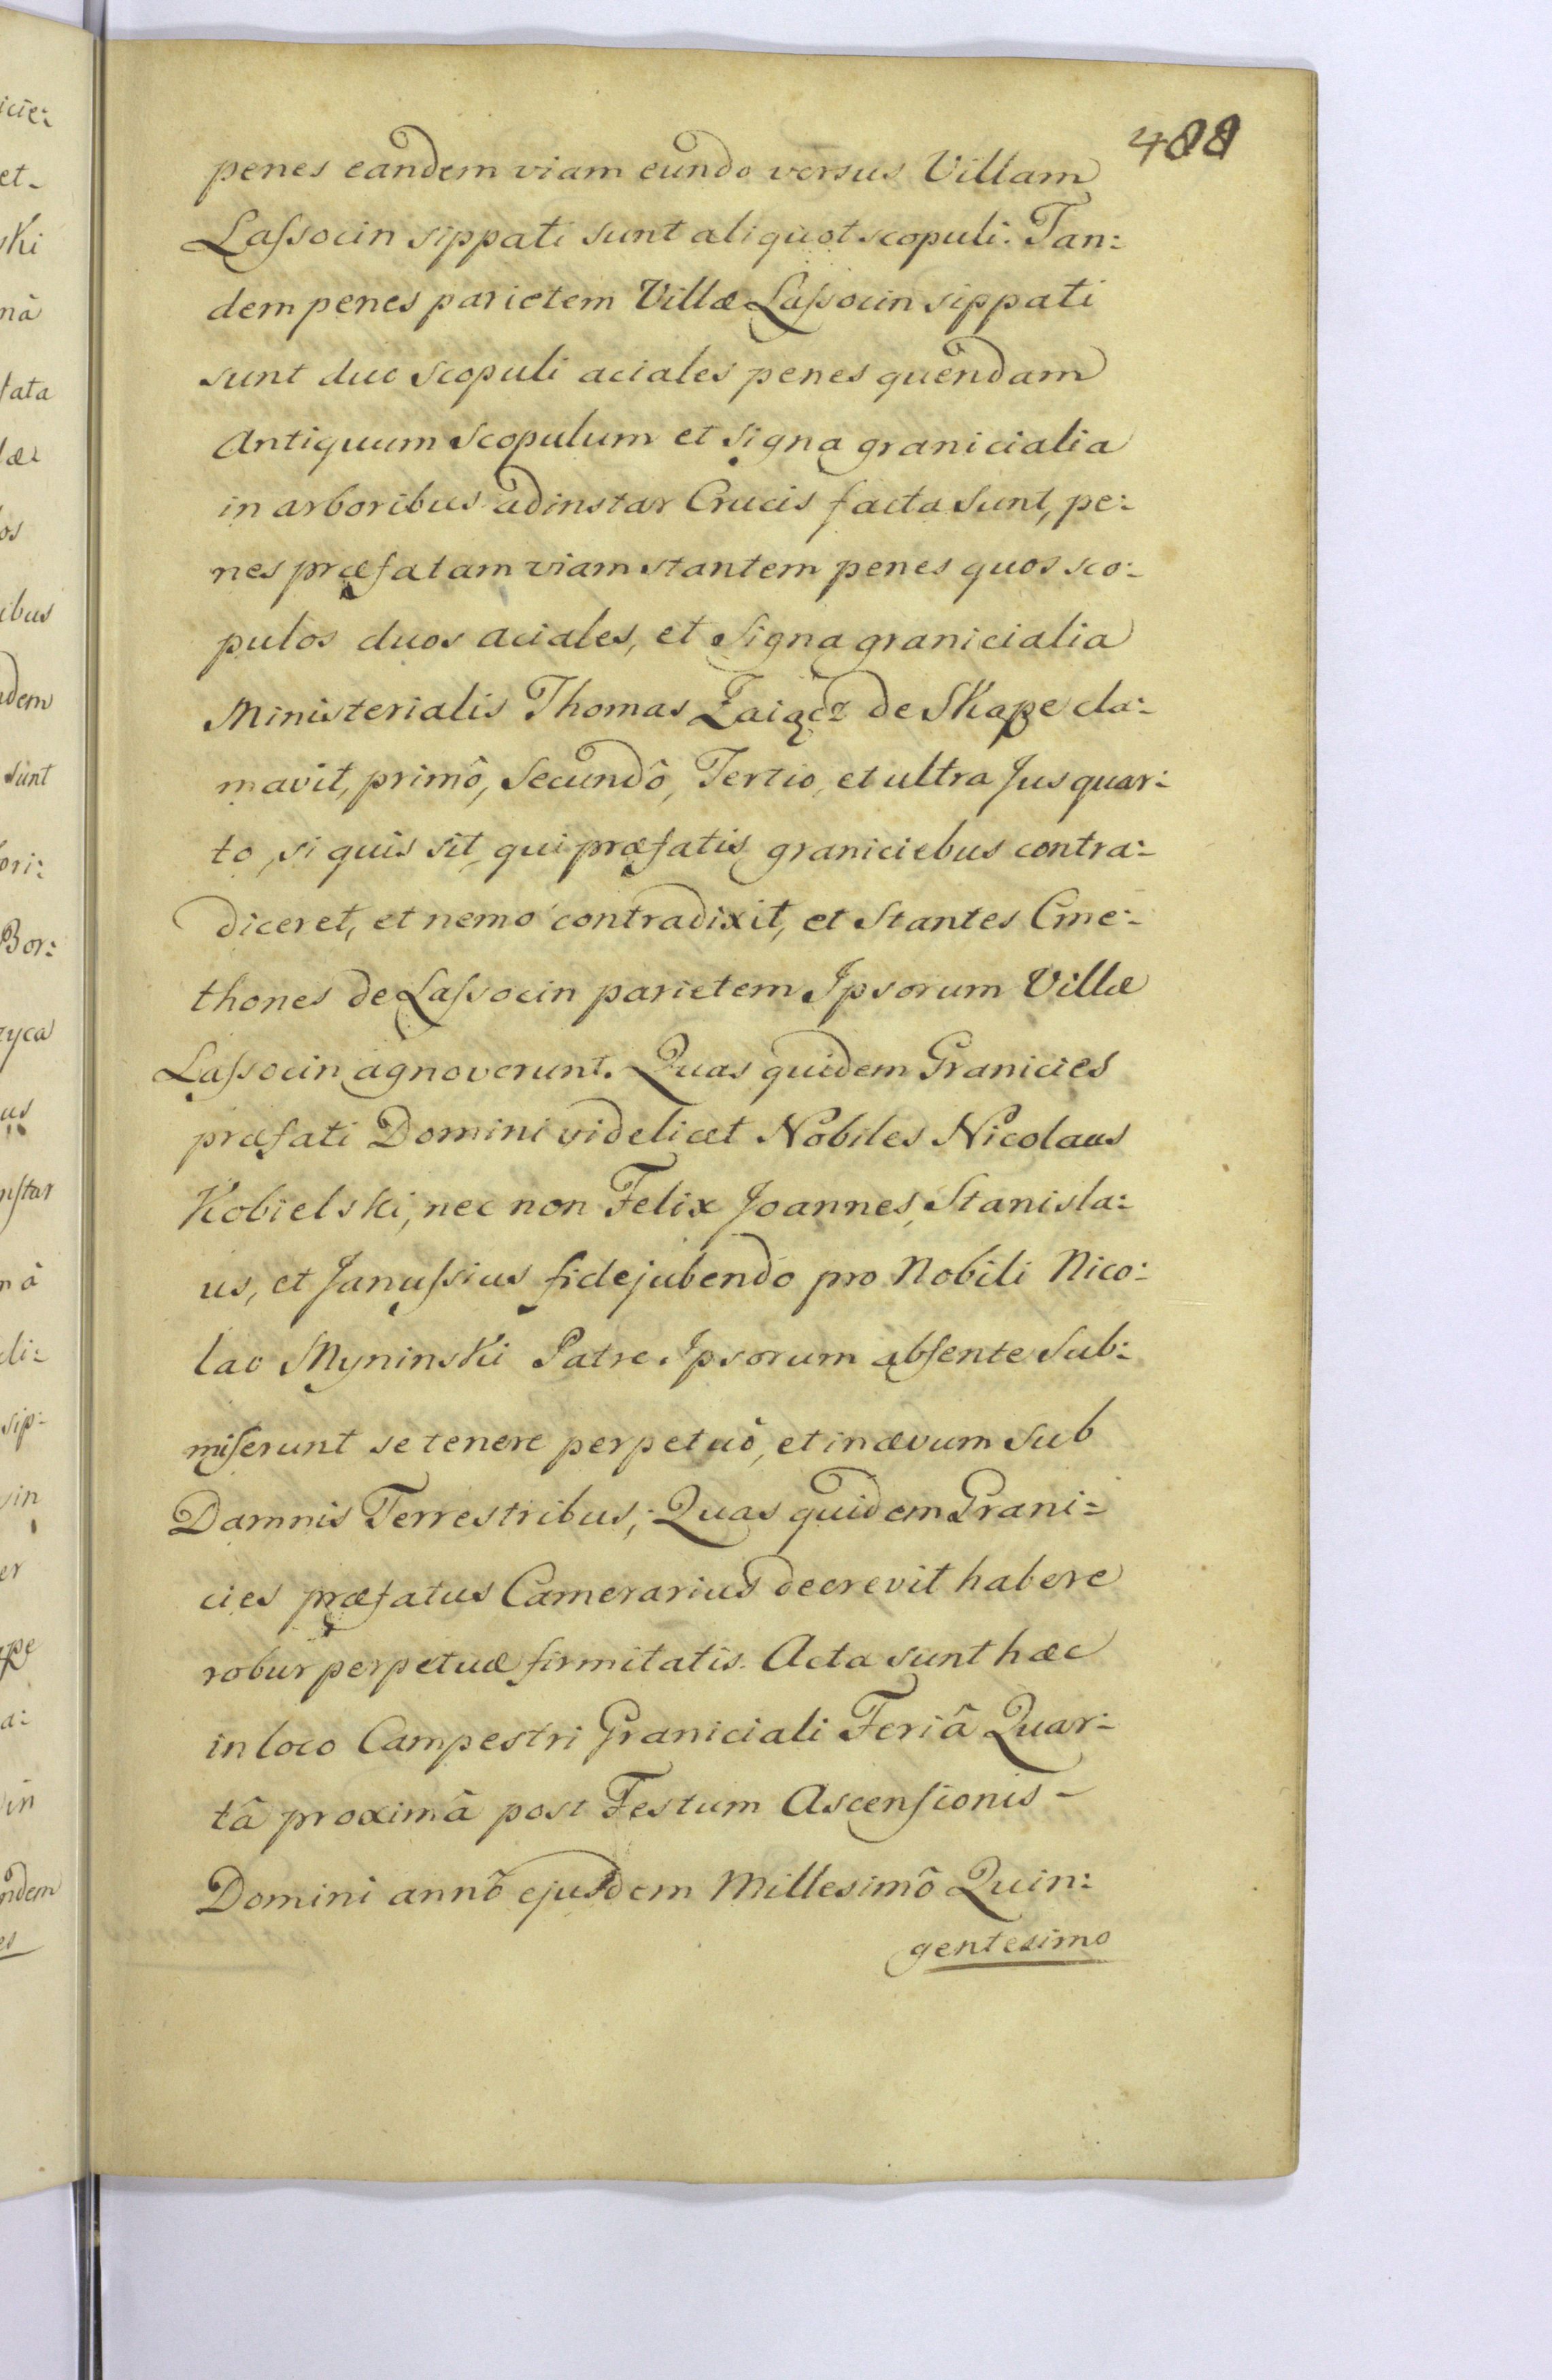 488
penes eandem viam eundo versus Villam
Laſsocin sippati sunt aliquot scopuli. Tan:
dem penes parietem Villæ Laſsocin sippati
sunt duo scopuli aciales penes quendam
Antiquum scopulum et signa granicialia
in arboribus adinstar Crucis facta sunt, pe:
nes præfatam viam stantem penes quos sco:
pulos duos aciales, et signa granicialia
Ministerialis Thomas de Skape cla:
mavit, primô, Secundô, Tertio, et ultra Jus quar:
to, si quis sit, qui præfatis graniciebus contra:
diceret, et nemo contradixit, et Stantes Cme:
thones de Laſsocin parietem Ipsorum Villæ
Laſsocin agnoverunt. Quas quidem Granicies
præfati Domini videlicet Nobiles Nicolaus
Kobielski, nec non Felix Joannes, Stanisla:
us, et Januſsius fidejubendo pro Nobili Nico:
lao Myninski Patre Ipsorum abſente Sub:
miſerunt se tenere perpetuò, et in ævum Sub
Damnis Terrestribus; Quas quidem Grani:
cies præfatus Camerarius decrevit habere
robur perpetuæ firmitatis. Acta sunt hæc
in loco Campestri Graniciali Feriâ Quar:
tâ proximâ post Festum Ascenſionis -
Domini annô ejusdem Millesimô Quin:
gentesimo